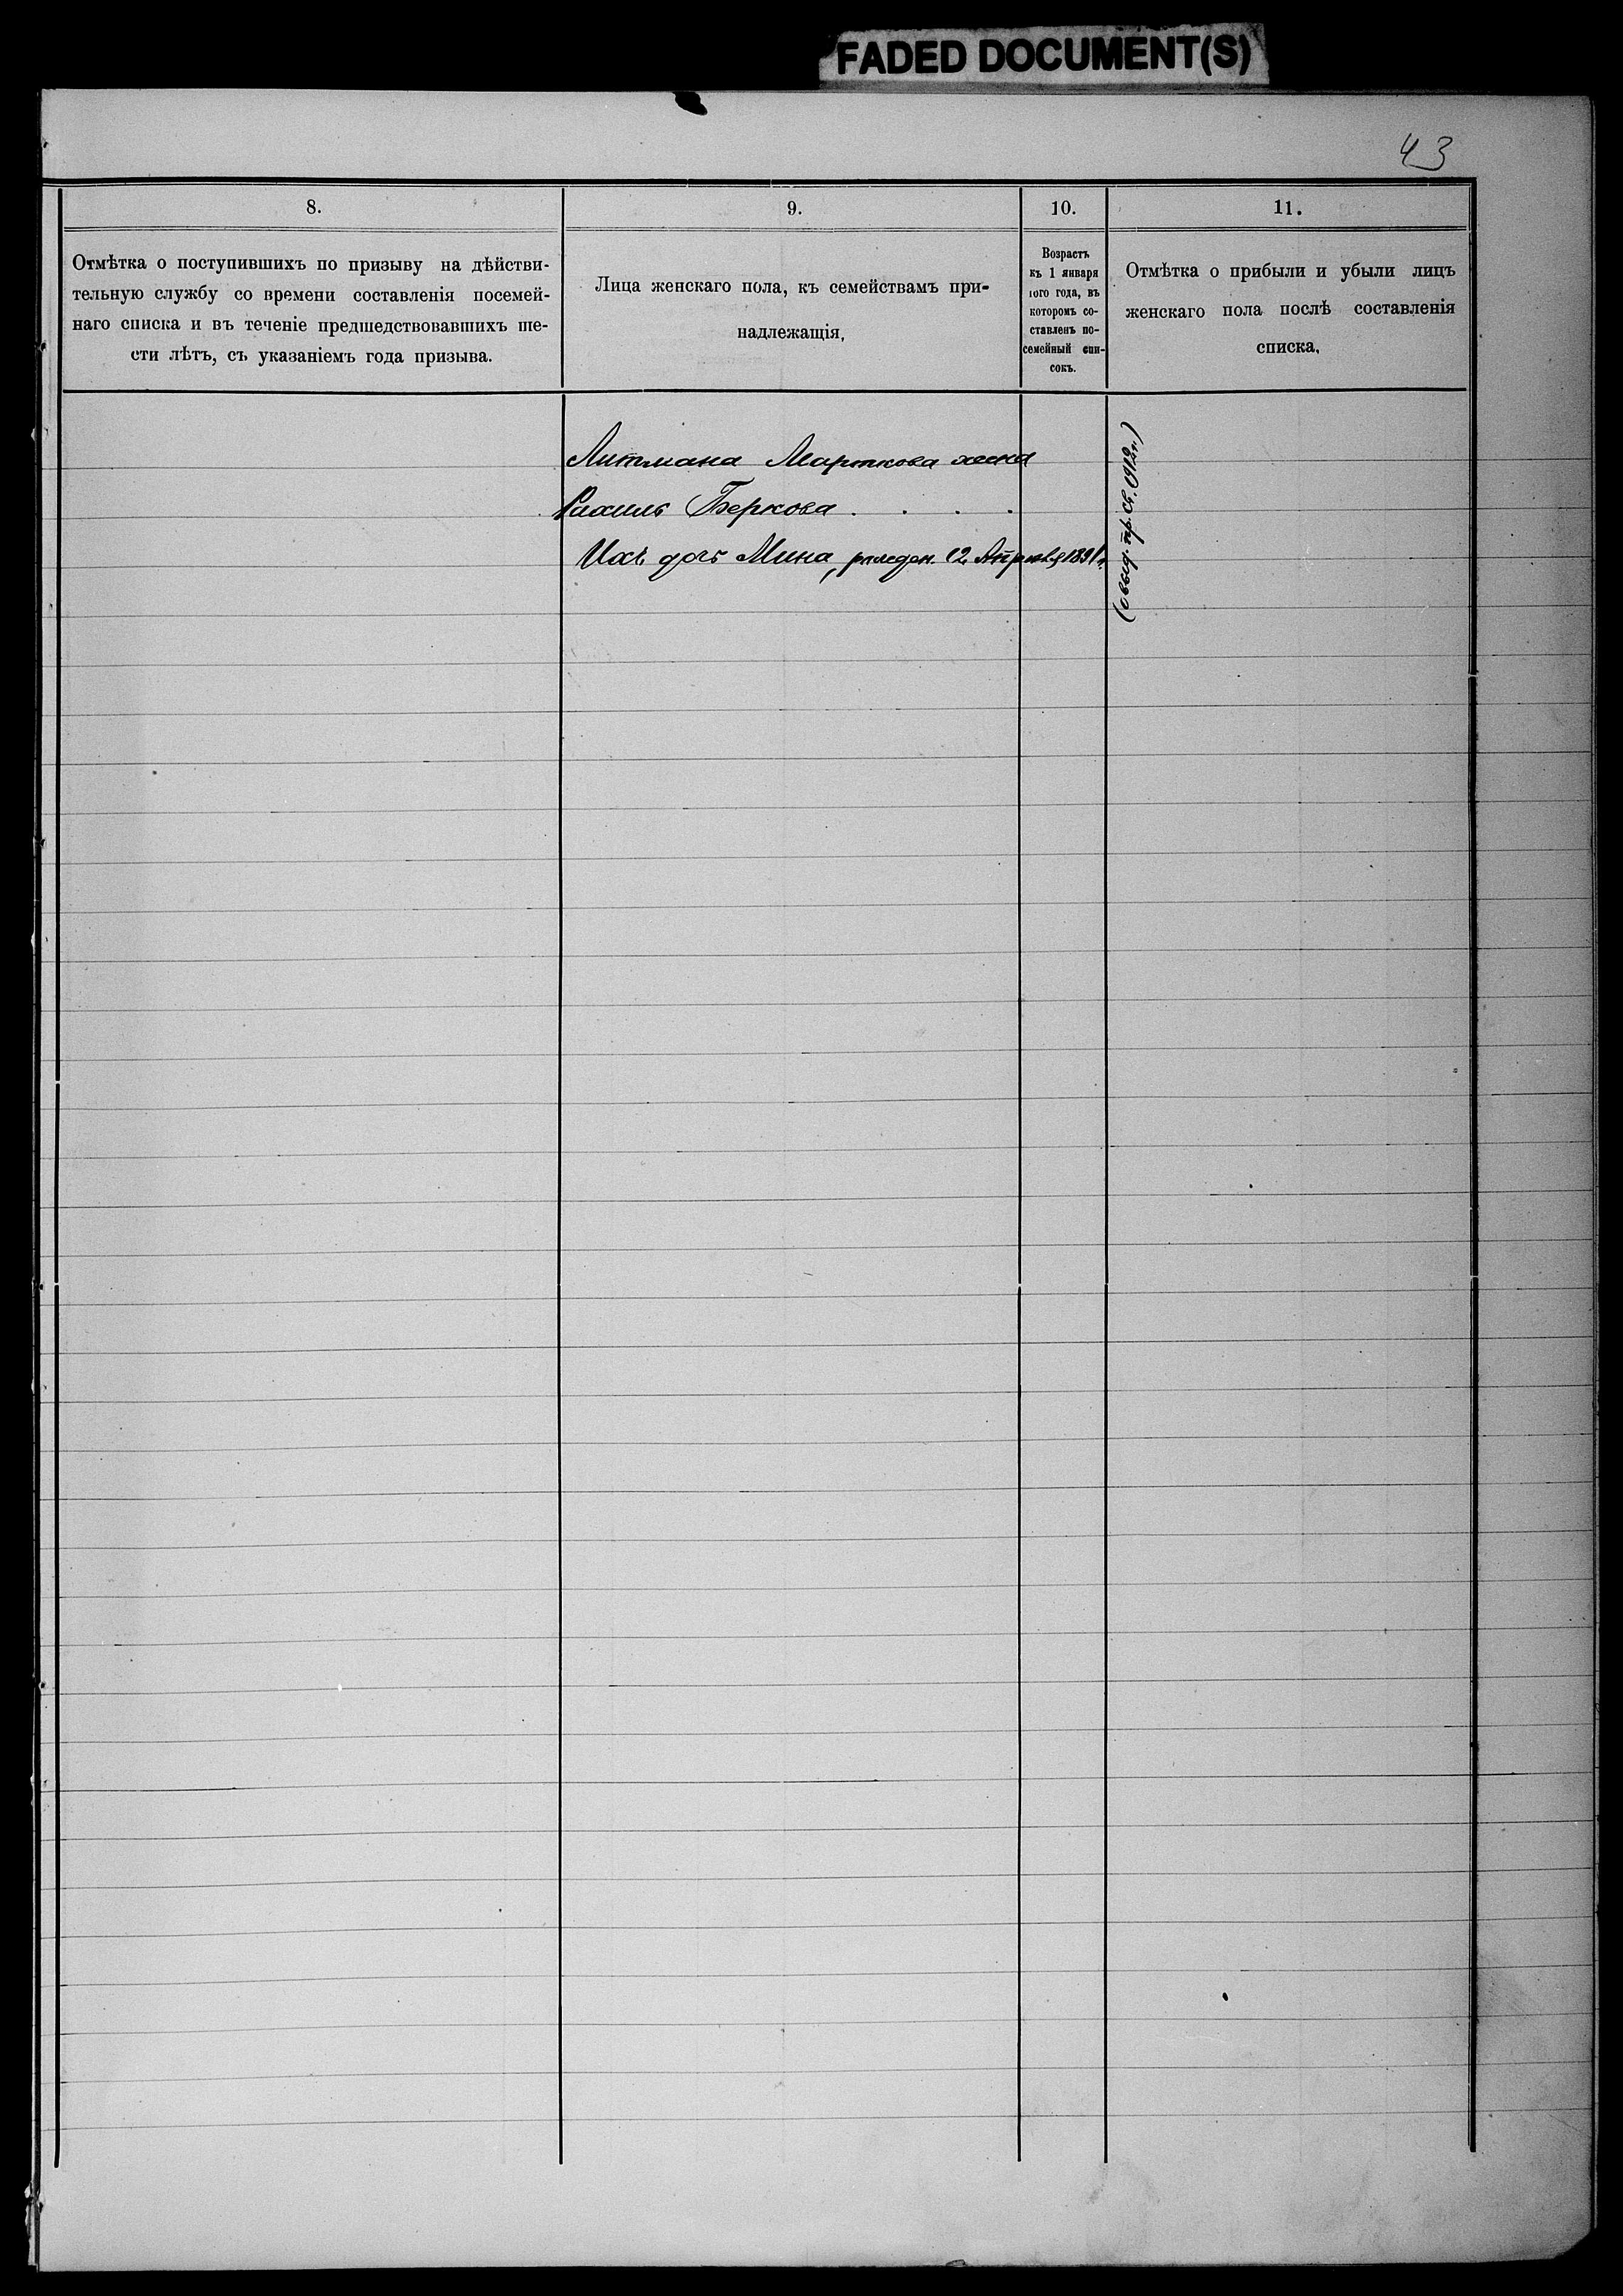 FADED DOCUMENT(S)
43
8.
Отмѣтка о поступившихъ по призыву на дѣйстви-
тельную службу со времени составленія посемей-
наго списка и въ теченіе предшедствовавшихъ ше-
сти лѣтъ, съ указаніемъ года призыва.
9.
Лица женскаго пола, къ семействамъ при-
надлежащія,
10.
Возрастъ
къ 1 января
того года, въ
которомъ со-
ставленъ по-
семейный спи-
сокъ.
11.
Отмѣтка о прибыли и убыли лицъ
женскаго пола послѣ составленія
списка,
Литмана Марткова жена
Рахиль Беркова . . . .
Ихъ дочь Мина, рожден. 12 Апрѣля 1891 г.
(выд. пр. св. 1912 г.)